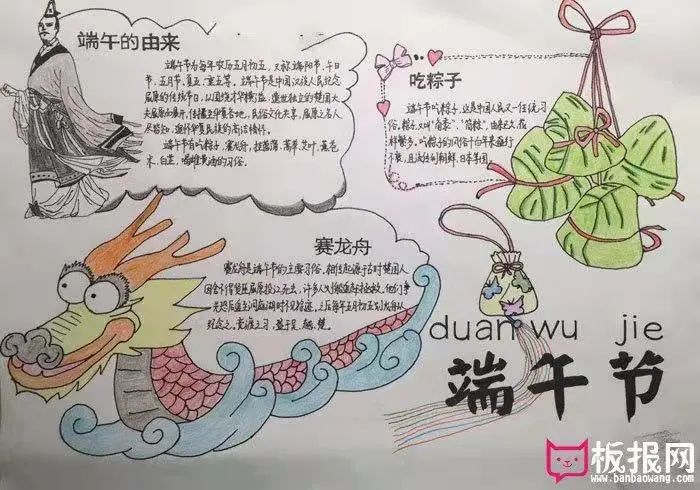 端午的由来
端午节为每年农历五月初五，又称端阳节，午日
节，五月节，夏五，重五等。端午节是中国汉族人民纪念
屈原的传统节日，以围绕才华横溢，遗世独立的楚国大
夫屈原而展开，传播至华夏各地，民俗文化共享，屈原之名人
尽皆知，追怀华夏民族的高洁情怀。
端午节有吃粽子，赛龙舟，挂菖蒲，蒿草，艾叶，薰苍
术，白芷，喝雄黄酒的习俗。
吃粽子
端午节吃粽子，这是中国人民又一传统习
俗，粽子，又叫"角黍"，"筒粽"，由来已久，花
样繁多。吃粽子的风俗千百年来盛行
不衰，且流传到朝鲜，日本等国。
赛龙舟
赛龙舟是端午节的主要习俗，相传起源于古时楚国人
因舍不得贤臣屈原投江死去，许多人划船追赶拯救。他们争
先恐后追至洞庭湖时不见踪迹，之后每年五月初五划龙舟以
纪念之。竞渡之习，盛于吴，越，楚。
duan wu jie
端午节
板报网
www.banbaowang.com